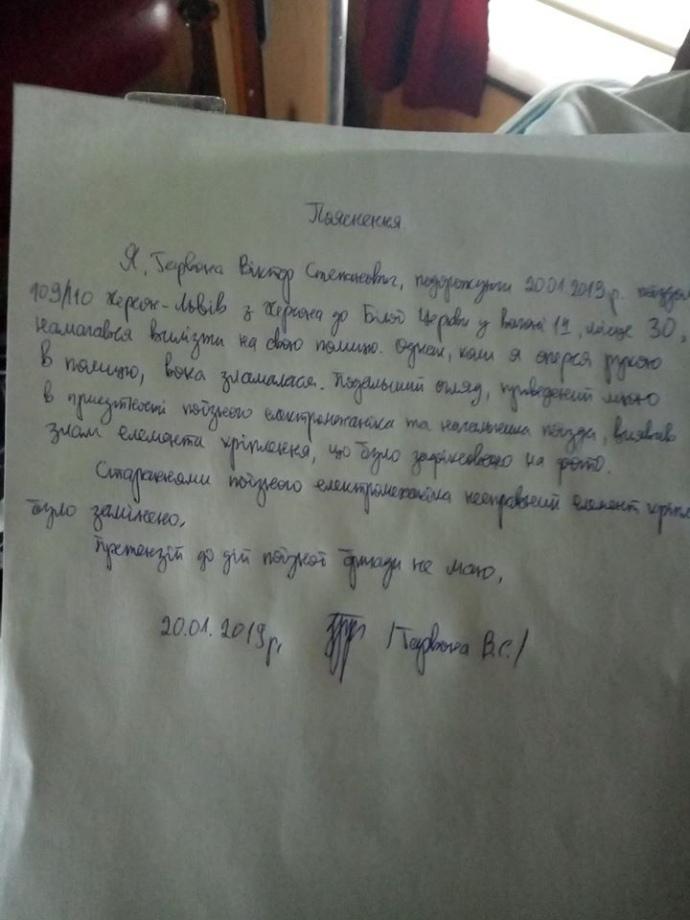 Пояснення
Я, Віктор Степанович, подорожуючи 20.01.2019 р. поїздом
109/110 Херсон-Львів з Херсона до Білої Церкви у вагоні 12, місце 30,
намагався вилізти на свою полицю. Однак, коли я оперся рукою
в полицю, вона зламалася. Подальший огляд, проведений мною
в присутності поїзного електромеханіка та начальника поїзда, виявив
злам елемента кріплення, що було зафіксовано на фото.
Стараннями поїзного електромеханіка несправний елемент кріпл
було замінено.
Претензій до дій поїзної бригади не маю.
20.01.2019 р. В.С./